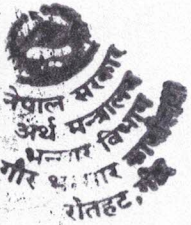 नेपाल सरकार
अर्थ मन्त्रालय
भन्सार विभाग
गौर भन्सार कार्यालय
रौतहट,